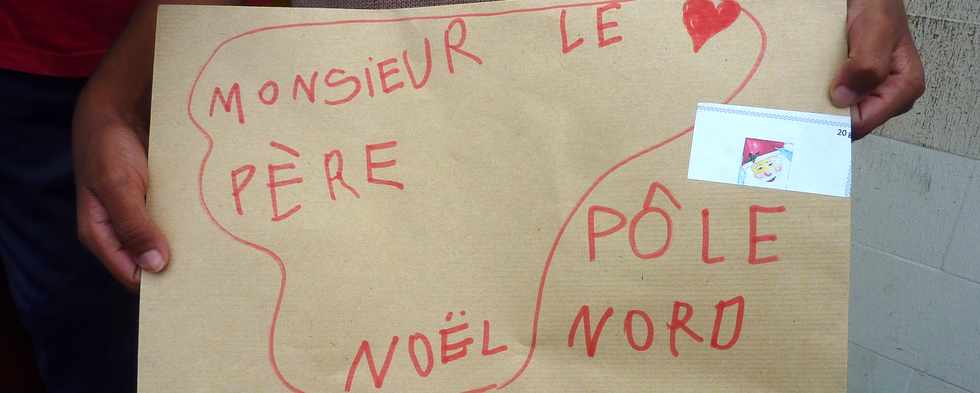 MONSiEUR LE
PÈRE
NOËL
20
PÔLE
NORD